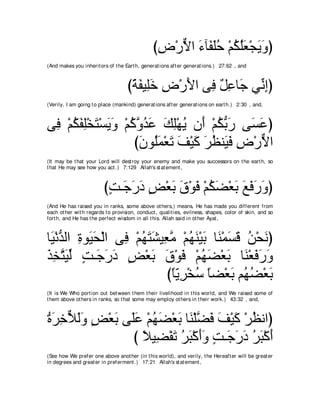 (وَيَجْعَلُكُمْ حُلَفَآءَ ٱلاٌّرْضِ)
(And makes you inheritors of the Earth, generations after generations.) 27:62 , and
(إِنِّي جَاعِلٌ فِى ٱلأَرْضِ خَلِيفَةً)
(Verily, I am going to place (mankind) generations after generations on earth.) 2:30 , and,
(عَسَى رَبُّكُمْ أَن يُهْلِكَ عَدُوَّكُمْ وَيَسْتَخْلِفَكُمْ فِى
ٱلاٌّرْضِ فَيَنظُرَ كَيْفَ تَعْمَلُونَ)
(It may be that your Lord will destroy your enemy and make you successors on the earth, so
that He may see how you act.) 7:129 Allah's statement,
(وَرَفَعَ بَعْضَكُمْ فَوْقَ بَعْضٍ دَرَجَـتٍ)
(And He has raised you in ranks, some above others,) means, He has made you different from
each other with regards to provision, conduct, qualities, evilness, shapes, color of skin, and so
forth, and He has the perfect wisdom in all this. Allah said in other Ayat,
(نَحْنُ قَسَمْنَا بَيْنَهُمْ مَّعِيشَتَهُمْ فِى ٱلْحَيَوةِ ٱلدُّنْيَا
وَرَفَعْنَا بَعْضَهُمْ فَوْقَ بَعْضٍ دَرَجَـتٍ لِّيَتَّخِذَ
بَعْضُهُم بَعْضاً سُخْرِيّاً)
(It is We Who portion out between them their livelihood in this world, and We raised some of
them above others in ranks, so that some may employ others in their work.) 43:32 , and,
(ٱنظُرْ كَيْفَ فَضَّلْنَا بَعْضَهُمْ عَلَى بَعْضٍ وَلَلاٌّخِرَةُ
أَكْبَرُ دَرَجَـتٍ وَأَكْبَرُ تَفْضِيلاً )
(See how We prefer one above another (in this world), and verily, the Hereafter will be greater
in degrees and greater in preferment.) 17:21 Allah's statement,